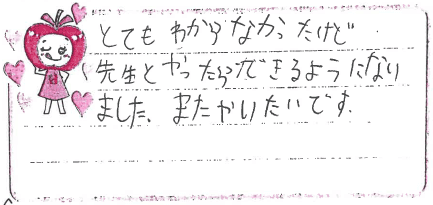 とてもわからなかったけど
先生とやったらできるようになり
ました、またかいたいです.